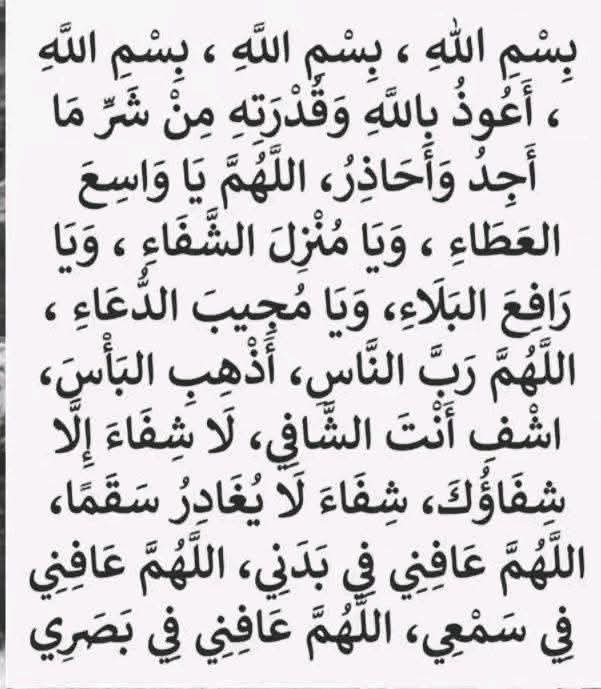 بِسْمِ اللهِ ، بِسْمِ اللَّهِ ، بِسْمِ اللَّهِ
، أَعُوذُ بِاللَّهِ وَقُدْرَتِهِ مِنْ شَرِّ مَا
أَجِدُ وَأَحَاذِرُ، اللَّهُمَّ يَا وَاسِعَ
العَطَاءِ ، وَيَا مُنْزِلَ الشَّفَاءِ ، وَيَا
رَافِعَ البَلَاءِ، وَيَا مُجِيبَ الدُّعَاءِ ،
اللَّهُمَّ رَبَّ النَّاسِ، أَذْهِبِ البَأْسَ،
اشْفِ أَنْتَ الشَّافِي، لَا شِفَاءَ إِلَّا
شِفَاؤُكَ، شِفَاءَ لَا يُغَادِرُ سَقَمًا،
اللَّهُمَّ عَافِنِي فِي بَدَنِي، اللَّهُمَّ عَافِنِي
فِي سَمْعِي، اللَّهُمَّ عَافِنِي فِي بَصَرِي